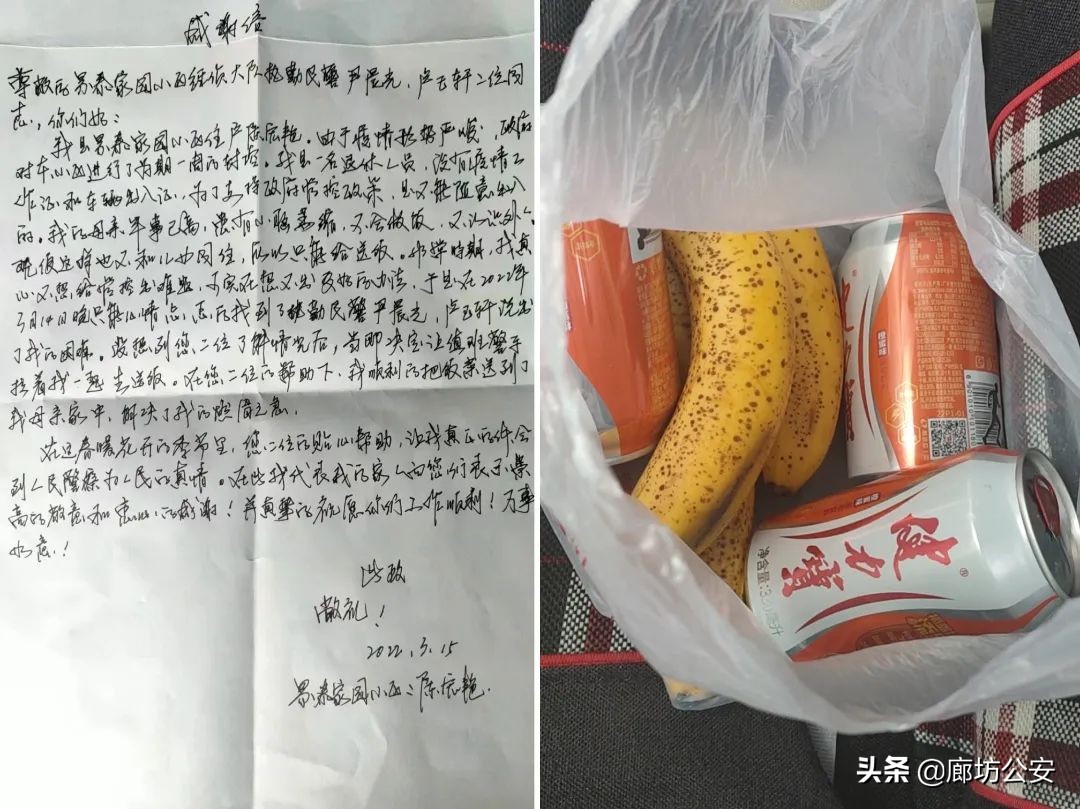 感谢信
尊敬的景泰家园小区经侦大队执勤民警严晨光，卢玉轩二位同
志，你们好：
我是景泰家园小区住户陈宏艳。由于疫情形势严峻，政府
对本小区进行了为期一周的封控。我是一名退休人员，没有疫情工
作证和车辆出入证，为了支持政府管控政策，是不能随意出入
的。我的母亲年事已高，患有小脑萎缩，不会做饭，不认识到人
晚很这样也不和儿女同住，所以只能给送饭。非常时期，我真
心不想给管控出难题，可实在想不出更好的办法，于是在2022年
3月14日晚只能心情忐忑的找到了执勤民警严晨光，卢玉轩说出
了我的困难。没想到您二位了解情况后，当即决定让值班警车
拉着我一起去送饭。在您二位的帮助下，我顺利的把饭菜送到了
我母亲家中，解决了我的燃眉之急。
在这春暖花开的季节里，您二位的贴心帮助，让我真正的体会
到人民警察为人民的真情。在此我代表我的家人向您们表示崇
高的敬意和衷心的感谢！并真挚的祝愿你们工作顺利！万事
如意！
此致
敬礼！
2022.3.15
景泰家园小区：陈宏艳
健力宝
®
净含量:330毫升
橙蜜味
22P1-01
头条 @廊坊公安